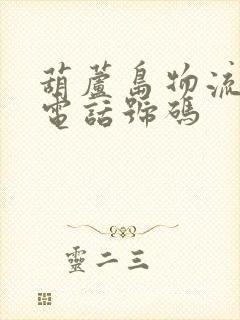 葫蘆島物流
電話號碼
靈二三